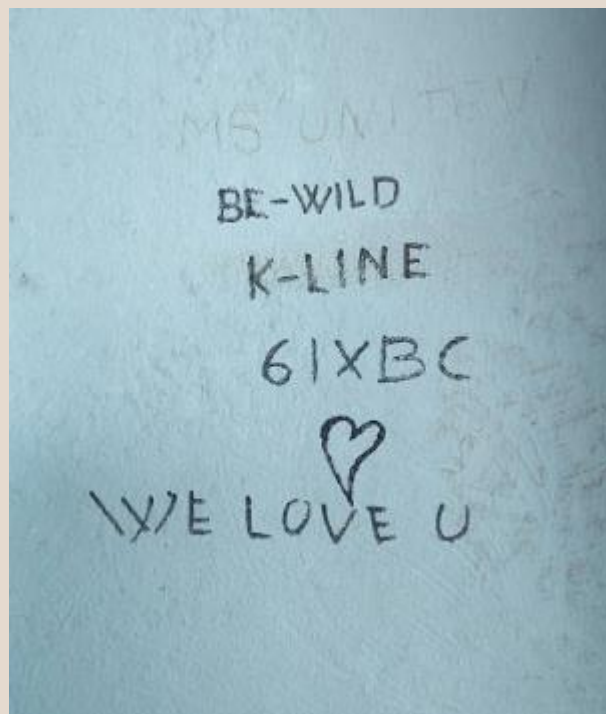 MS UNITED
BE-WILD
K-LINE
61XBC
WE LOVE U